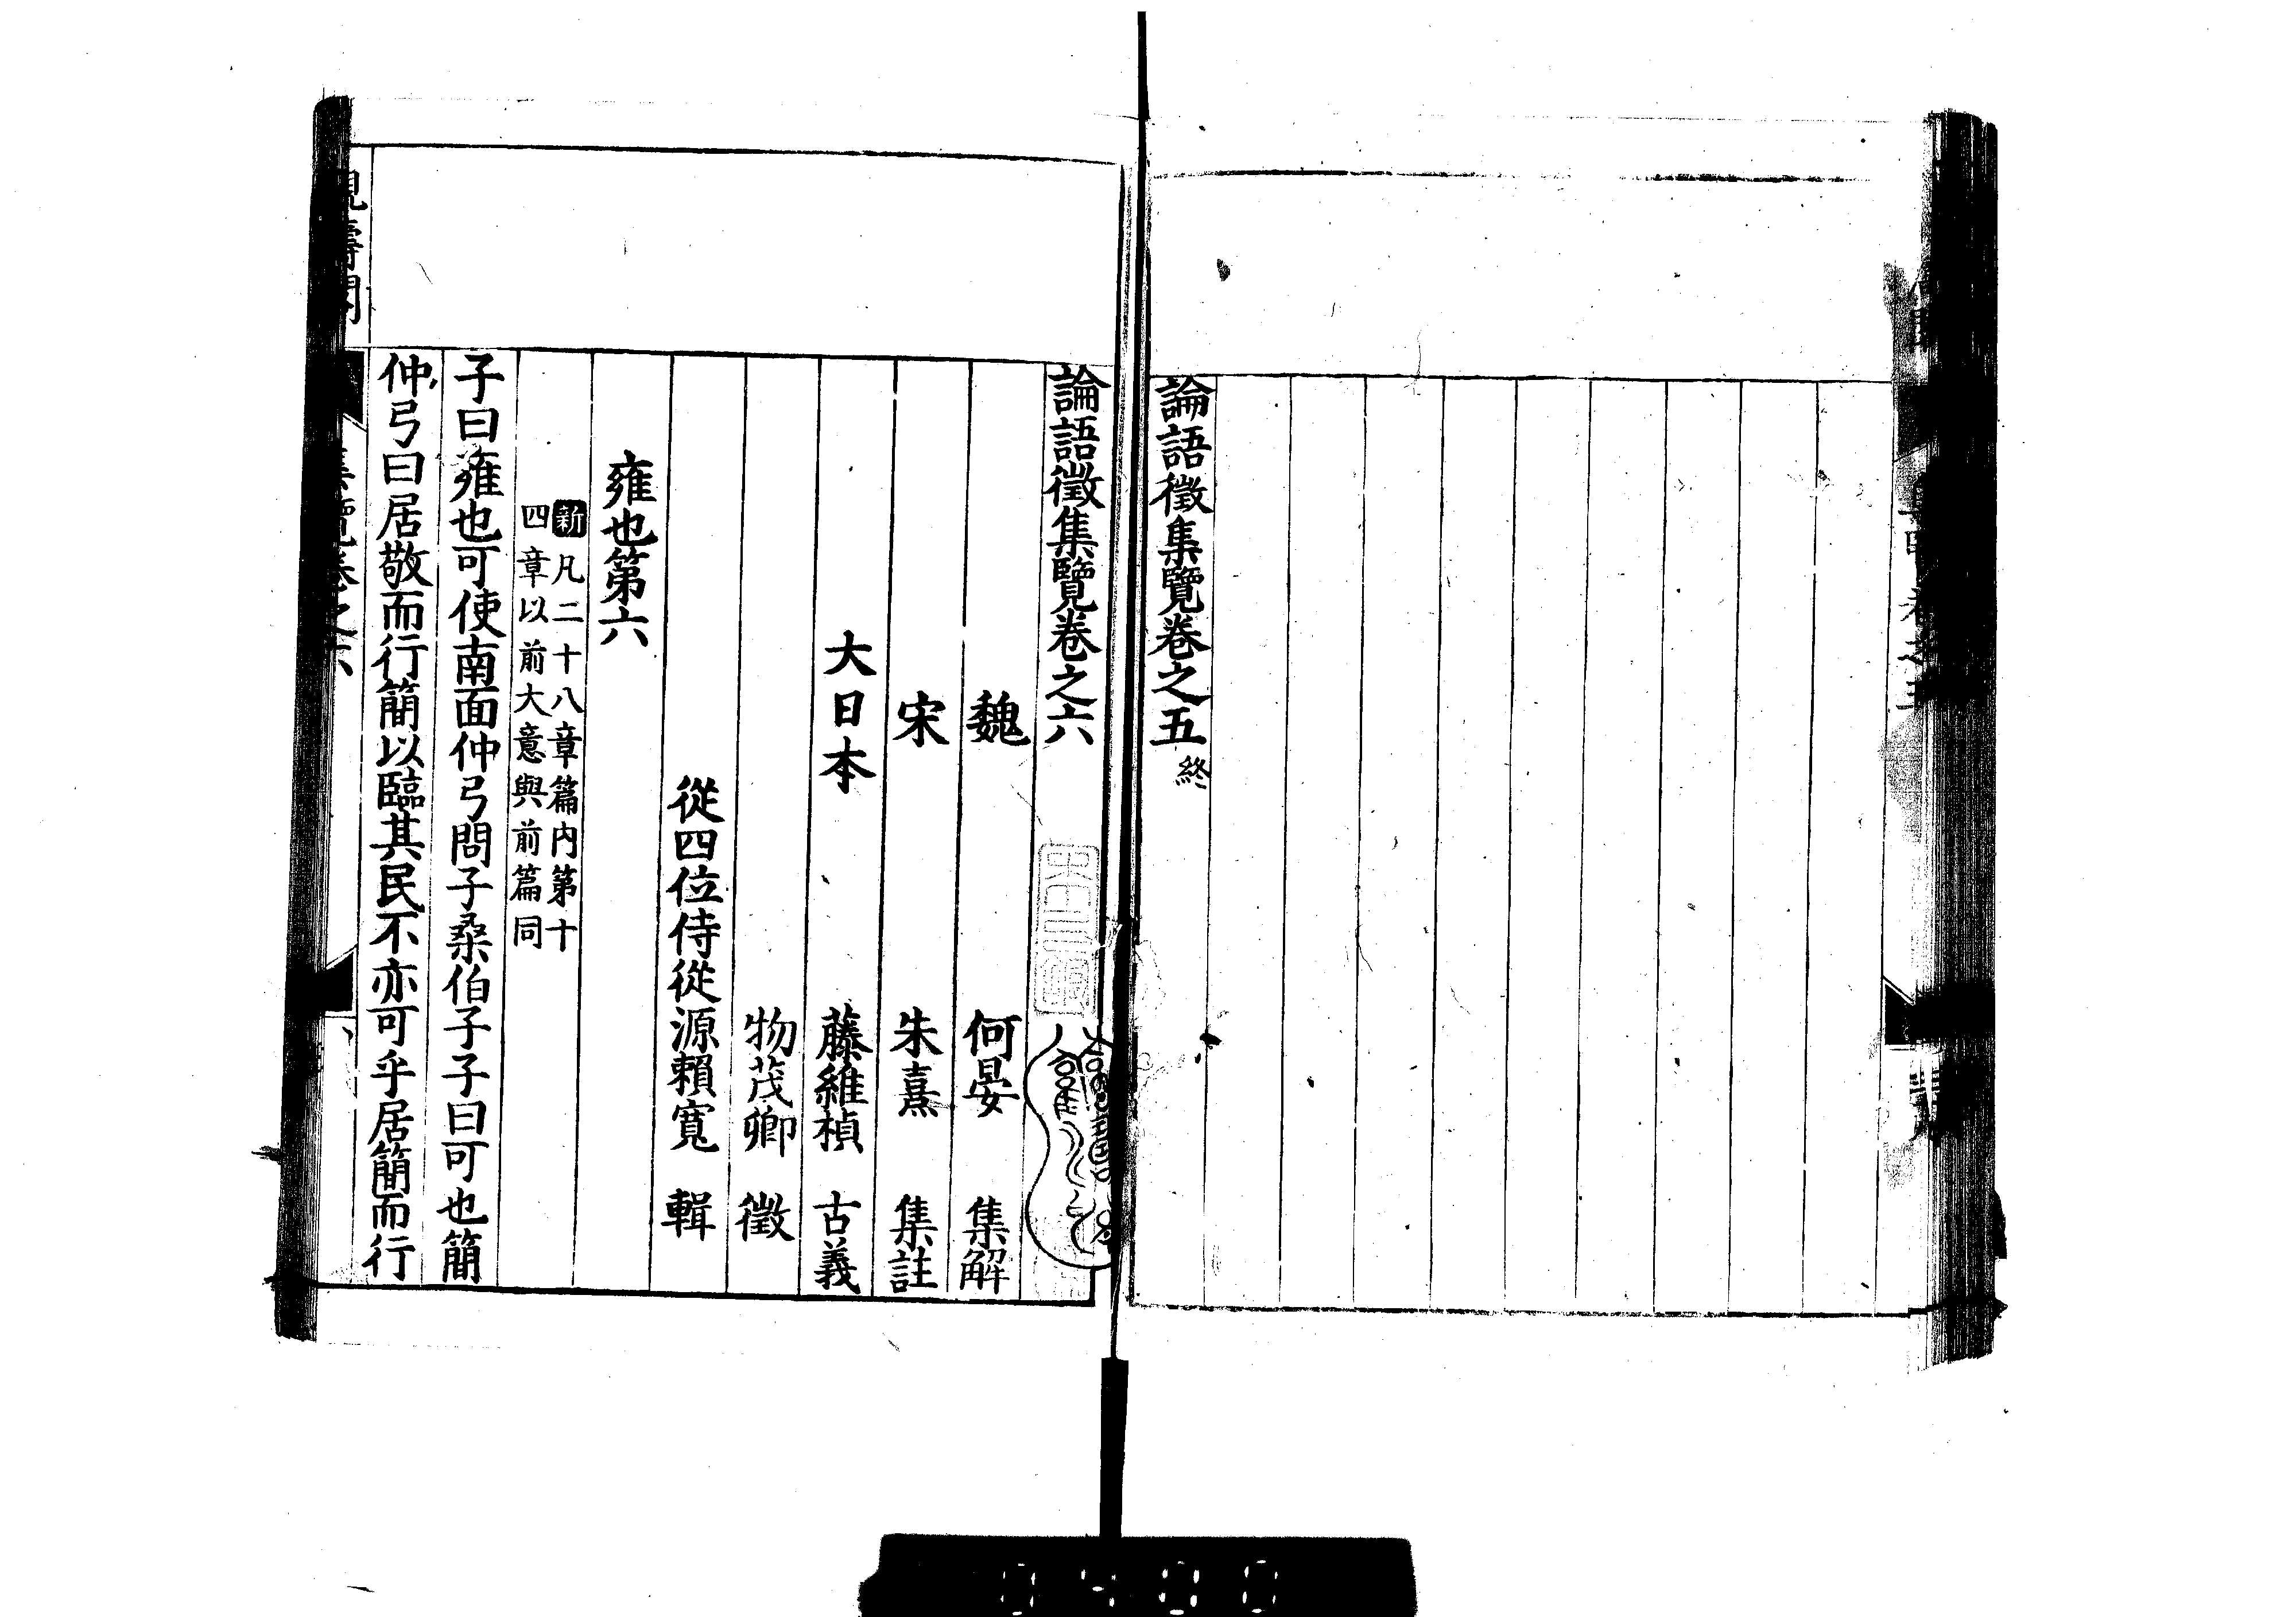 論語徵集覽卷之五終
論語徵集覽卷之六
魏 何晏 集解
宋 朱熹 集註
大日本 藤維楨 古義
物茂卿 徵
從四位侍從源賴寬 輯
雍也第六
新 凡二十八章篇内第十
四章以前大意與前篇同
子曰雍也可使南面仲弓問子桑伯子子曰可也簡
仲弓曰居敬而行簡以臨其民不亦可乎居簡而行
集覽卷之六